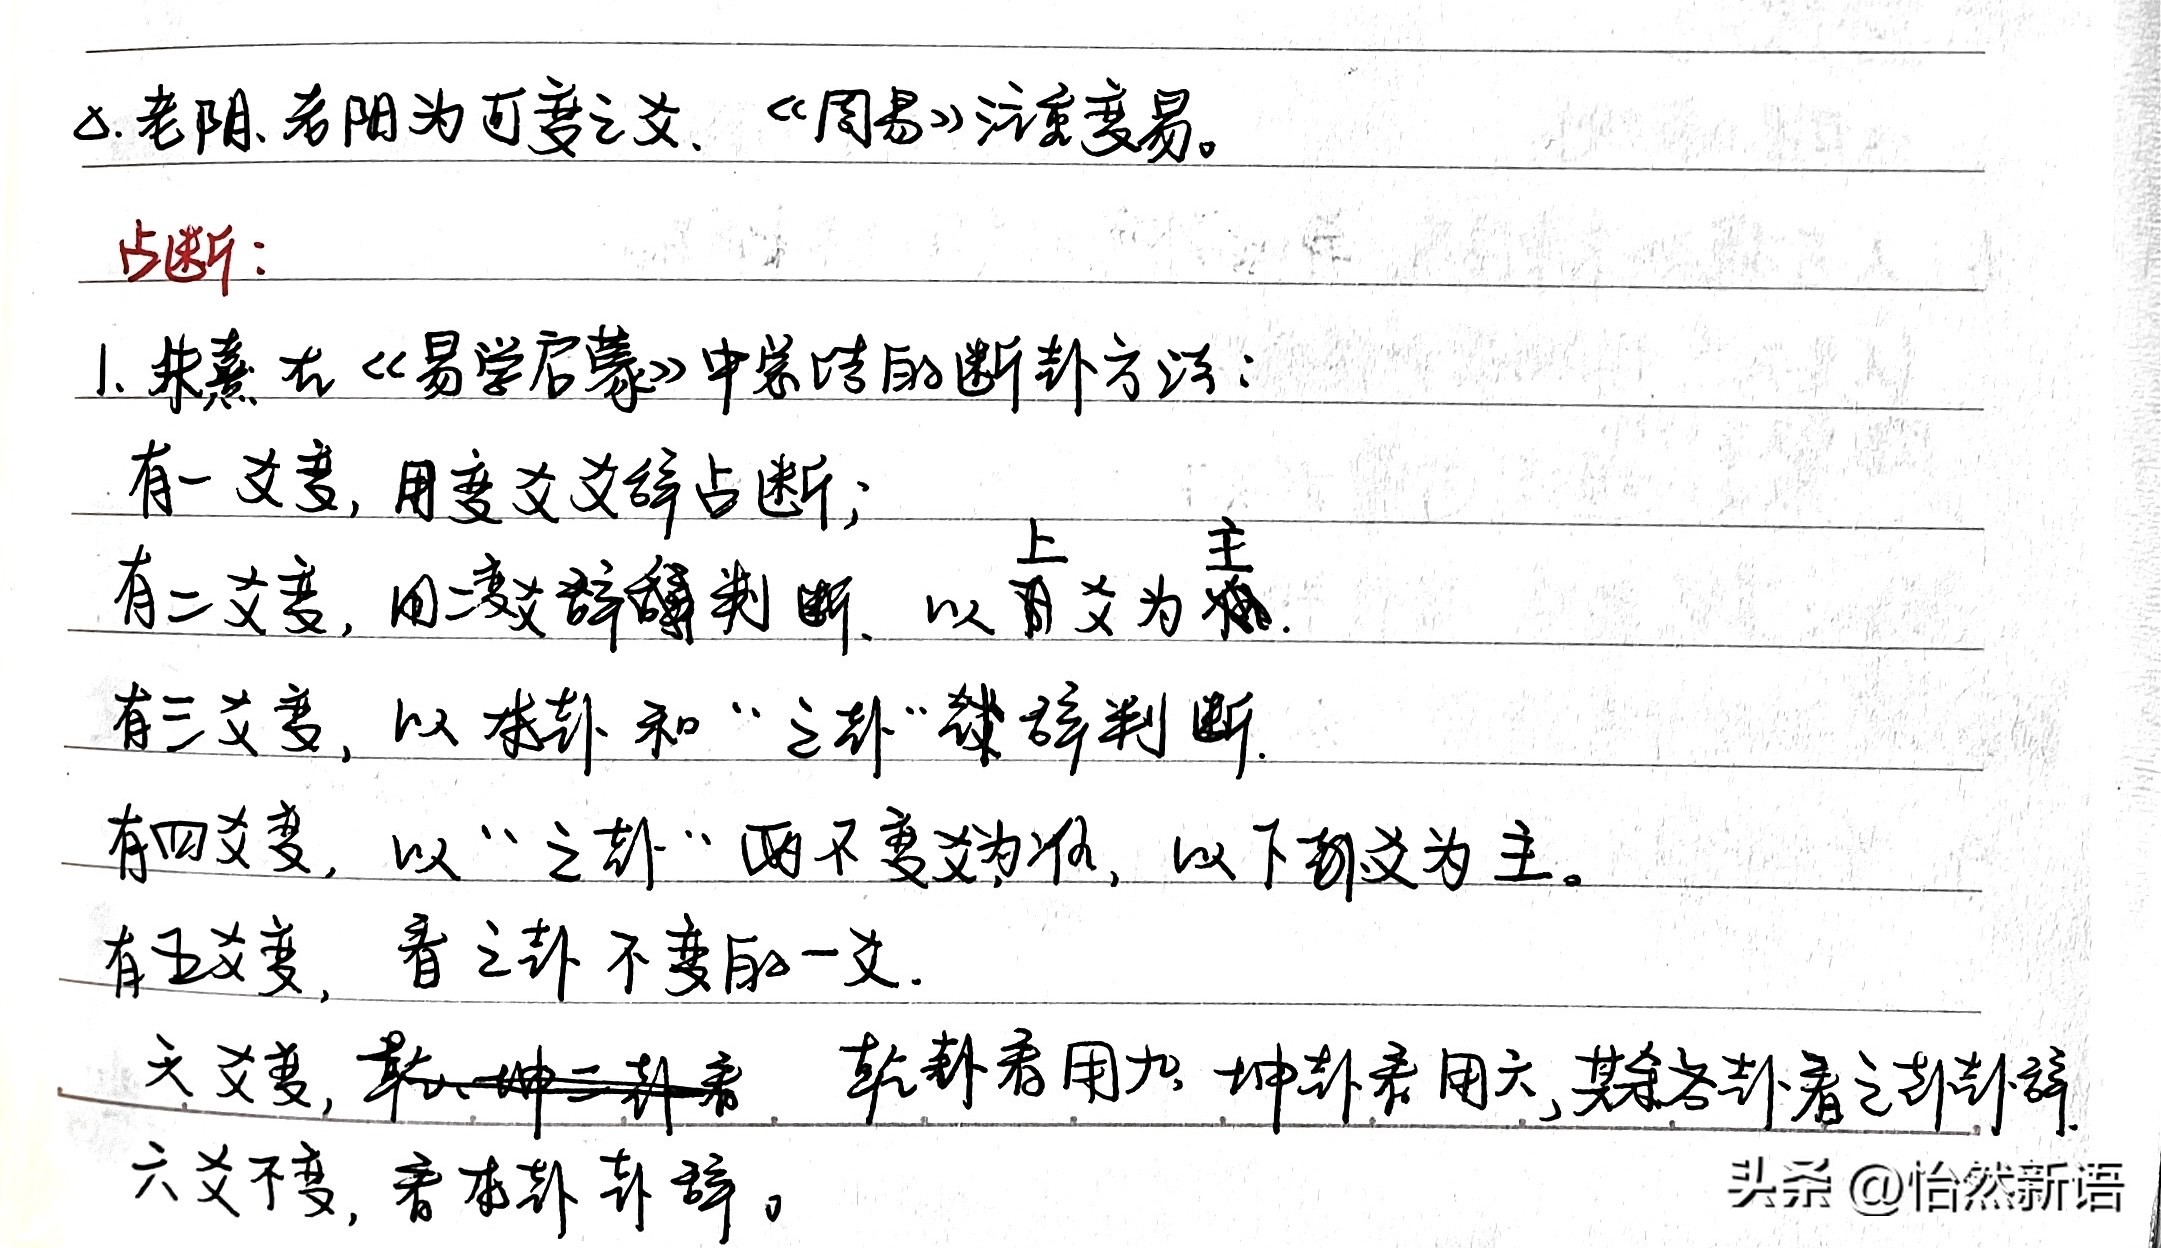 △.老阴、老阳为可变之爻、《周易》注重变易。
占断：
1、朱熹在《易学启蒙》中总结的断卦方法：
有一爻变，用变爻爻辞占断；
有二爻变，用二变爻辞判断、以上爻为主.
有三爻变，以本卦和“之卦”彖辞判断.
有四爻变，以“之卦”两不变爻为准，以下爻为主。
有五爻变，看之卦不变的一爻.
六爻变，乾、坤二卦看 乾卦看用九、坤卦看用六，其余各卦看之卦卦辞.
六爻不变，看本卦卦辞。
头条 @怡然新语